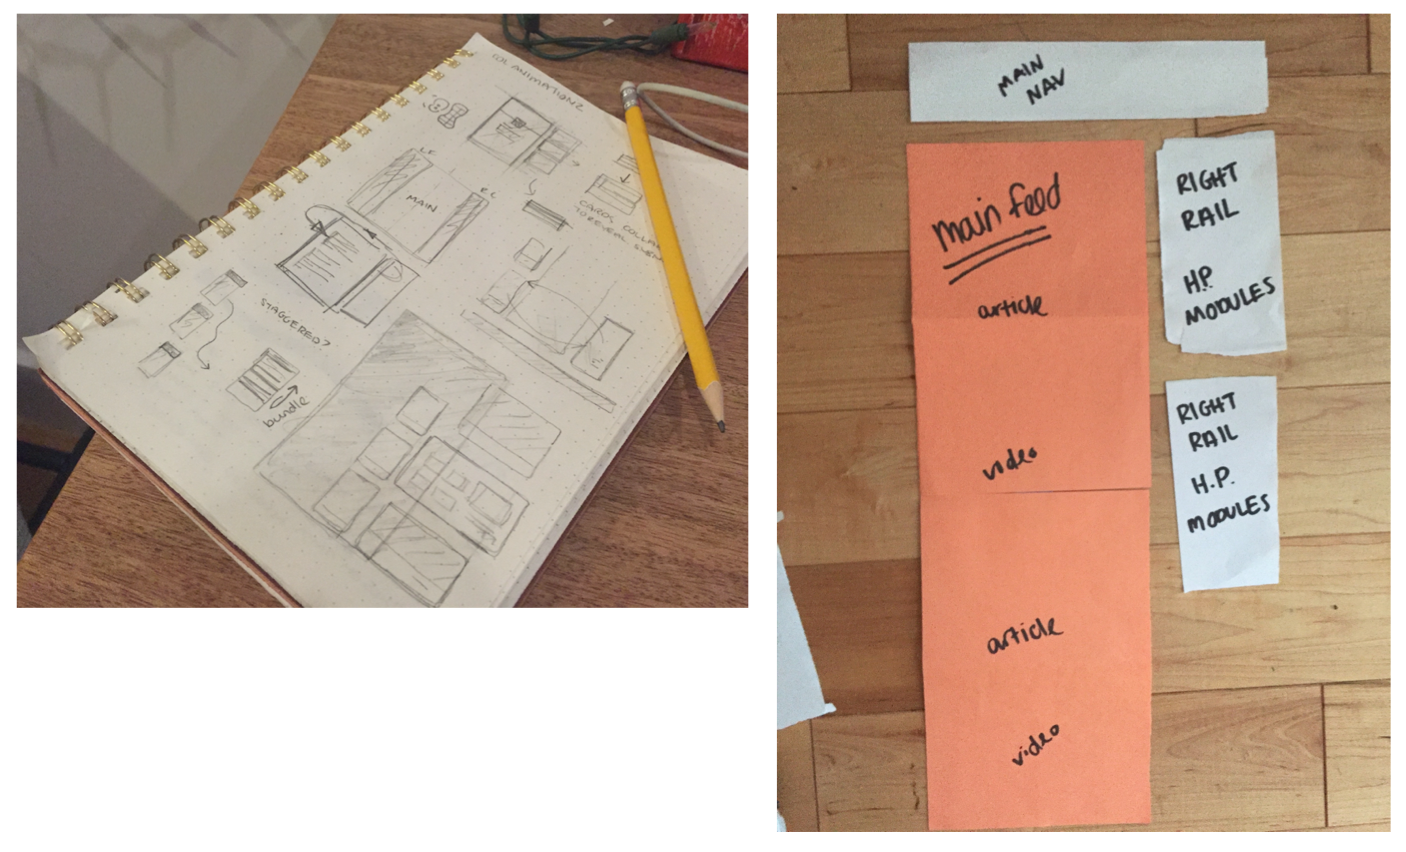 IDL ANIMATIONZ
LR
MAIN
RR
CARDS COLLAP
TO REVEAL
STAGGERED?
bundle
MAIN
NAV
main feed
article
video
article
video
RIGHT
RAIL
H.P.
MODULES
RIGHT
RAIL
H.P.
MODULES